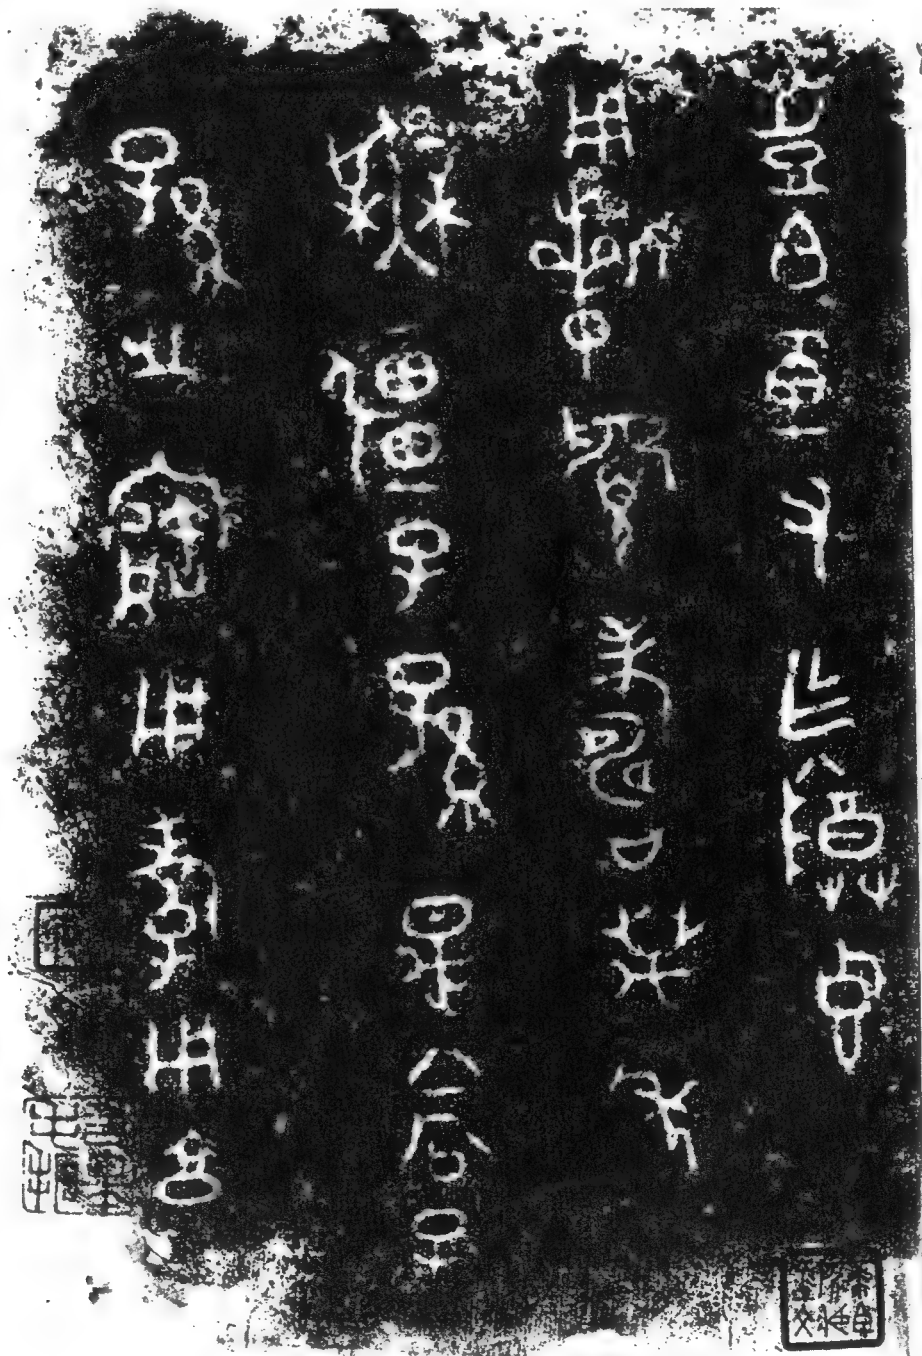 豐伯車父作尊簋
用祈眉壽萬年
無疆子孫是尚
子孫之寶用孝用享